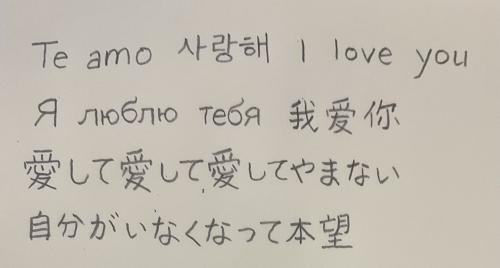 Te amo 사랑해 I love you
Я люблю тебя 我爱你
愛して愛して愛してやまない
自分がいなくなって本望